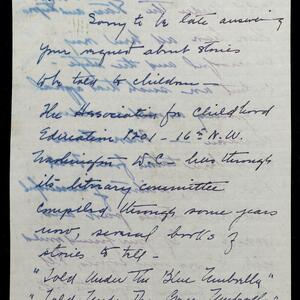 Sorry to be late answering
your request about stories
to be told to children—
The Association for Childhood
Education 1201-16th N.W.
Washington D.C. has through
its literary committee
compiled through some years
now, several books of
stories to tell-
"Told Under The Blue Umbrella"
"Told Under The Umbrella"